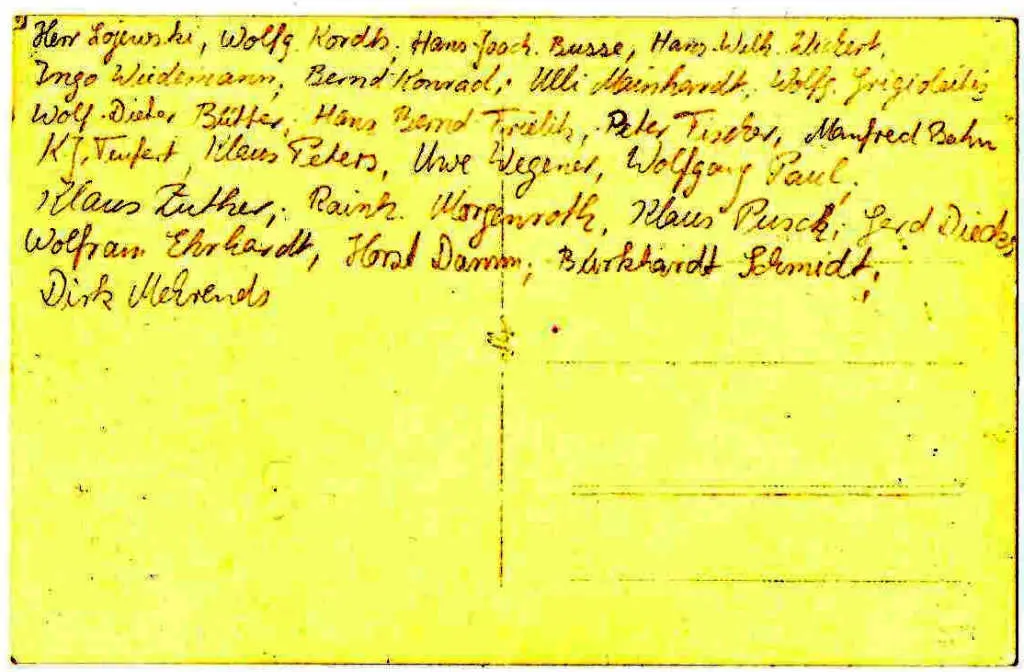 Herr Lojewski, Wolfg. Kordts, Hans-Joach. Busse, Hans-Wilh. Wickert,
Ingo Wiedemann, Bernd Konrad, Ulli Meinhardt, Wolfg. Grigoleitis
Wolf-Dieter Bütter, Hans Bernd Frielitz, Peter Fischer, Manfred Behn
KJ. Teufert, Klaus Peters, Uwe Wegener, Wolfgang Paul,
Klaus Zuther, Rainh. Morgenroth, Klaus Pusch, Gerd Diecks
Wolfram Ehrhardt, Horst Damm, Burkhardt Schmidt,
Dirk Mehrends